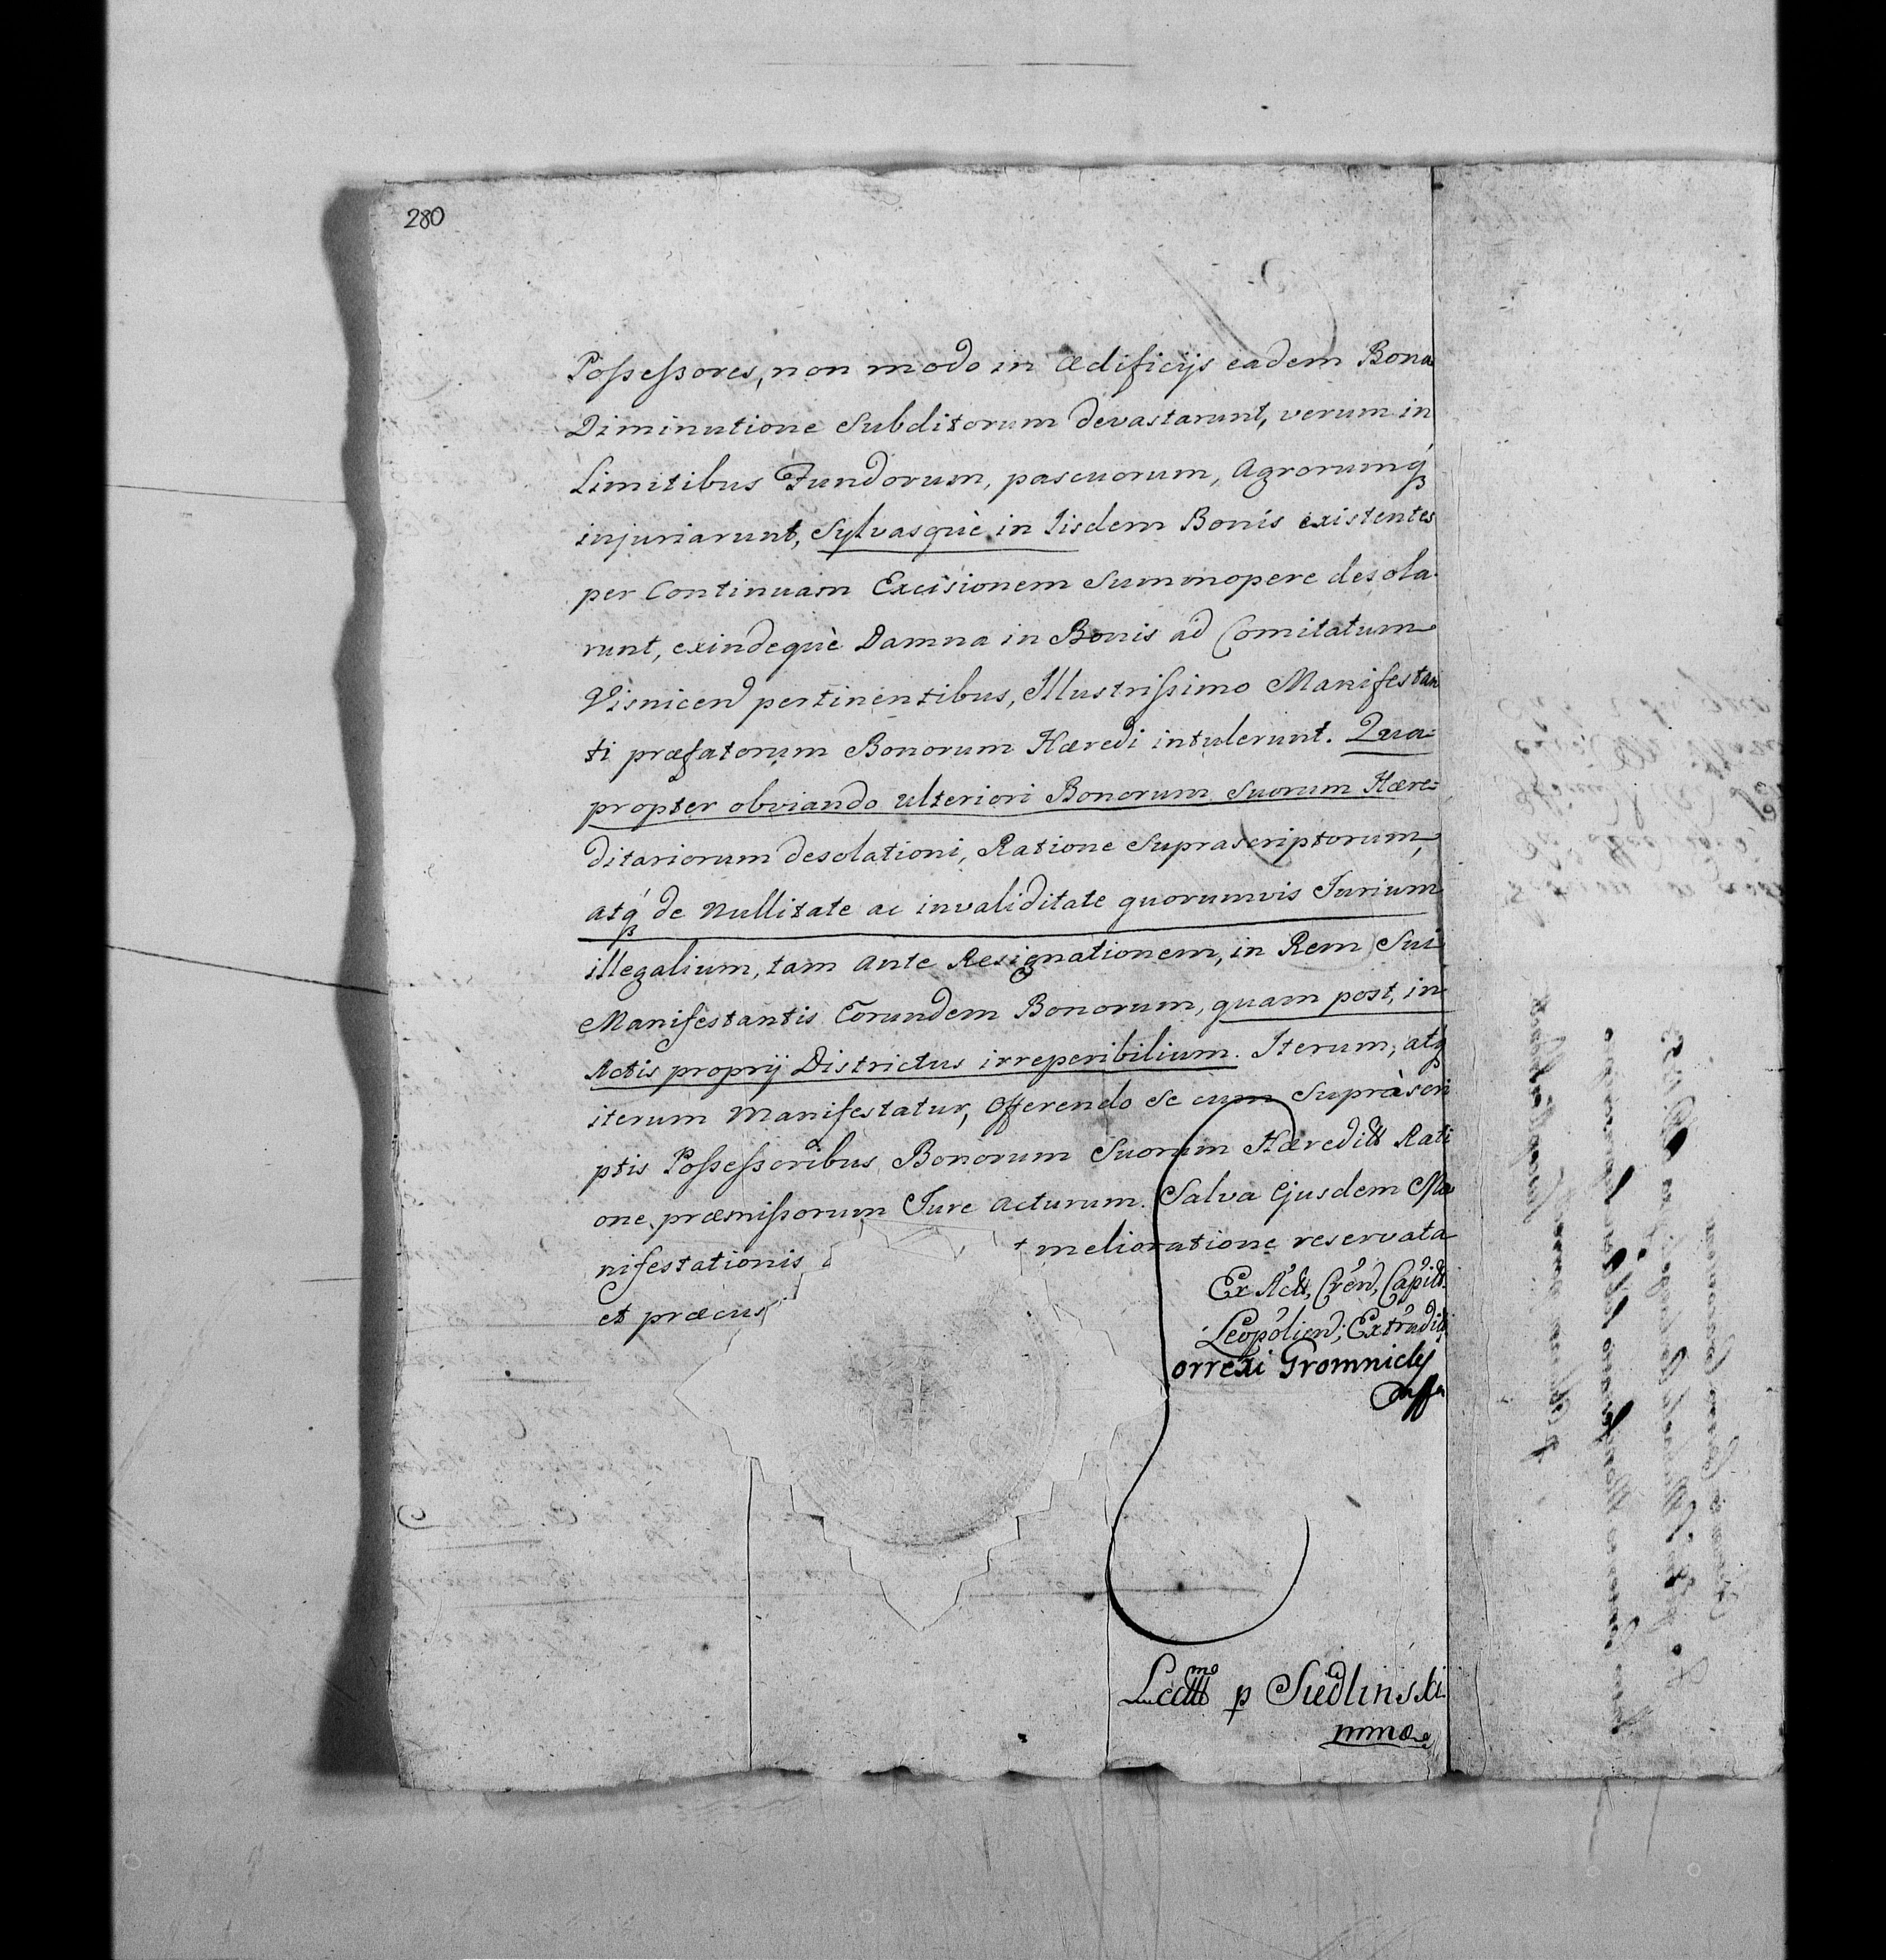 280
Possessores, non modo in ædificijs eadem Bona
Diminutione Subditorum devastarunt, verum in
Limitibus Fundorum, pascuorum, Agrorumq́
injuriarunt, Sylvasquè in Iisdem Bonis existentes
per Continuam Excisionem Summopere desola-
runt, exindequè Damna in Bonis ad Comitatum
Visnicen pertinentibus, Illustrissimo Manifestan
ti præfatorum Bonorum Hæredi intulerunt. Qua-
propter obviando ulteriori Bonorum Suorum Hære-
ditariorum desolationi, Ratione Suprascriptorum,
atq́ de Nullitate ac invaliditate quorumvis Jurium
illegalium, tam ante Resignationem, in Rem Sui
Manifestantis Eorundem Bonorum, quam post, in
Actis proprij Districtus irreperibilium. Iterum, atq
iterum Manifestatur, Offerendo Se cum Supràscri
ptis Possessoribus Bonorum Suorum Hæreditt Rati
one præmissorum Jure Acturum. Salva Ejusdem Ma
nifestationis melioratione reservata
et præcus
Ex Actt, Cren, Capitt
Leopolien, Extradit
orrexi Gromnicky
Lectt p Siedlinski
mmo